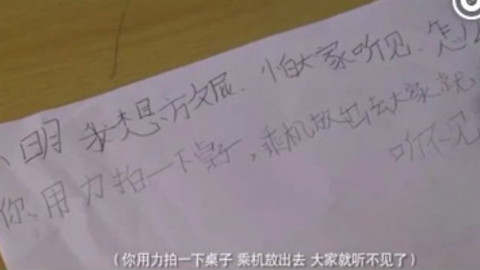 小明 我想方文屁、怕大家听见、怎么
你、用力拍一下桌子,乘机放出去大家就
听不见
(你用力拍一下桌子 乘机放出去 大家就听不见了)